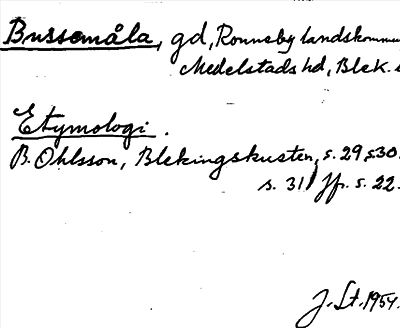 Bussemåla, gd, Ronneby landskommun
Medelstads hd, Blek.
Etymologi.
B. Ohlsson, Blekingskusten, s. 29, s. 30.
s. 31 Jfr. s. 22.
J. Lt. 1954.